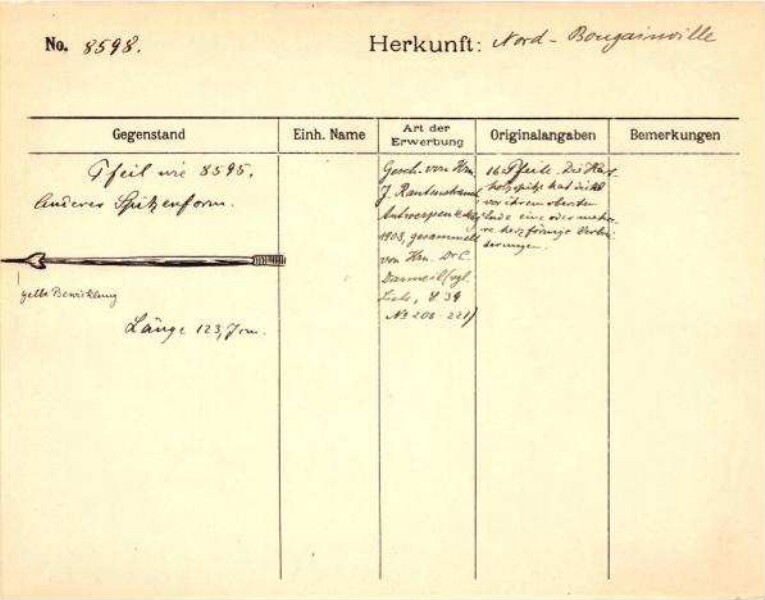 No. 8598.
Herkunft: Nord-Bougainville
Gegenstand
Einh. Name
Art der
Erwerbung
Originalangaben
Bemerkungen
Pfeil wie 8595.
Anderes Spitzenform.
gelbe Bewicklung
Länge 123,7 cm.
Gesch. von Hrn.
J. Rautenstrauch
Antwerpen
1903, gesammelt
von Hrn. Dr C.
(vgl.
Liste, S 34
No 208-221)
16 Pfeile. Die Hart-
holzspitze hat dicht
vor ihrem obersten
Ende eine oder mehre-
re herzförmige Verbrei-
terungen.